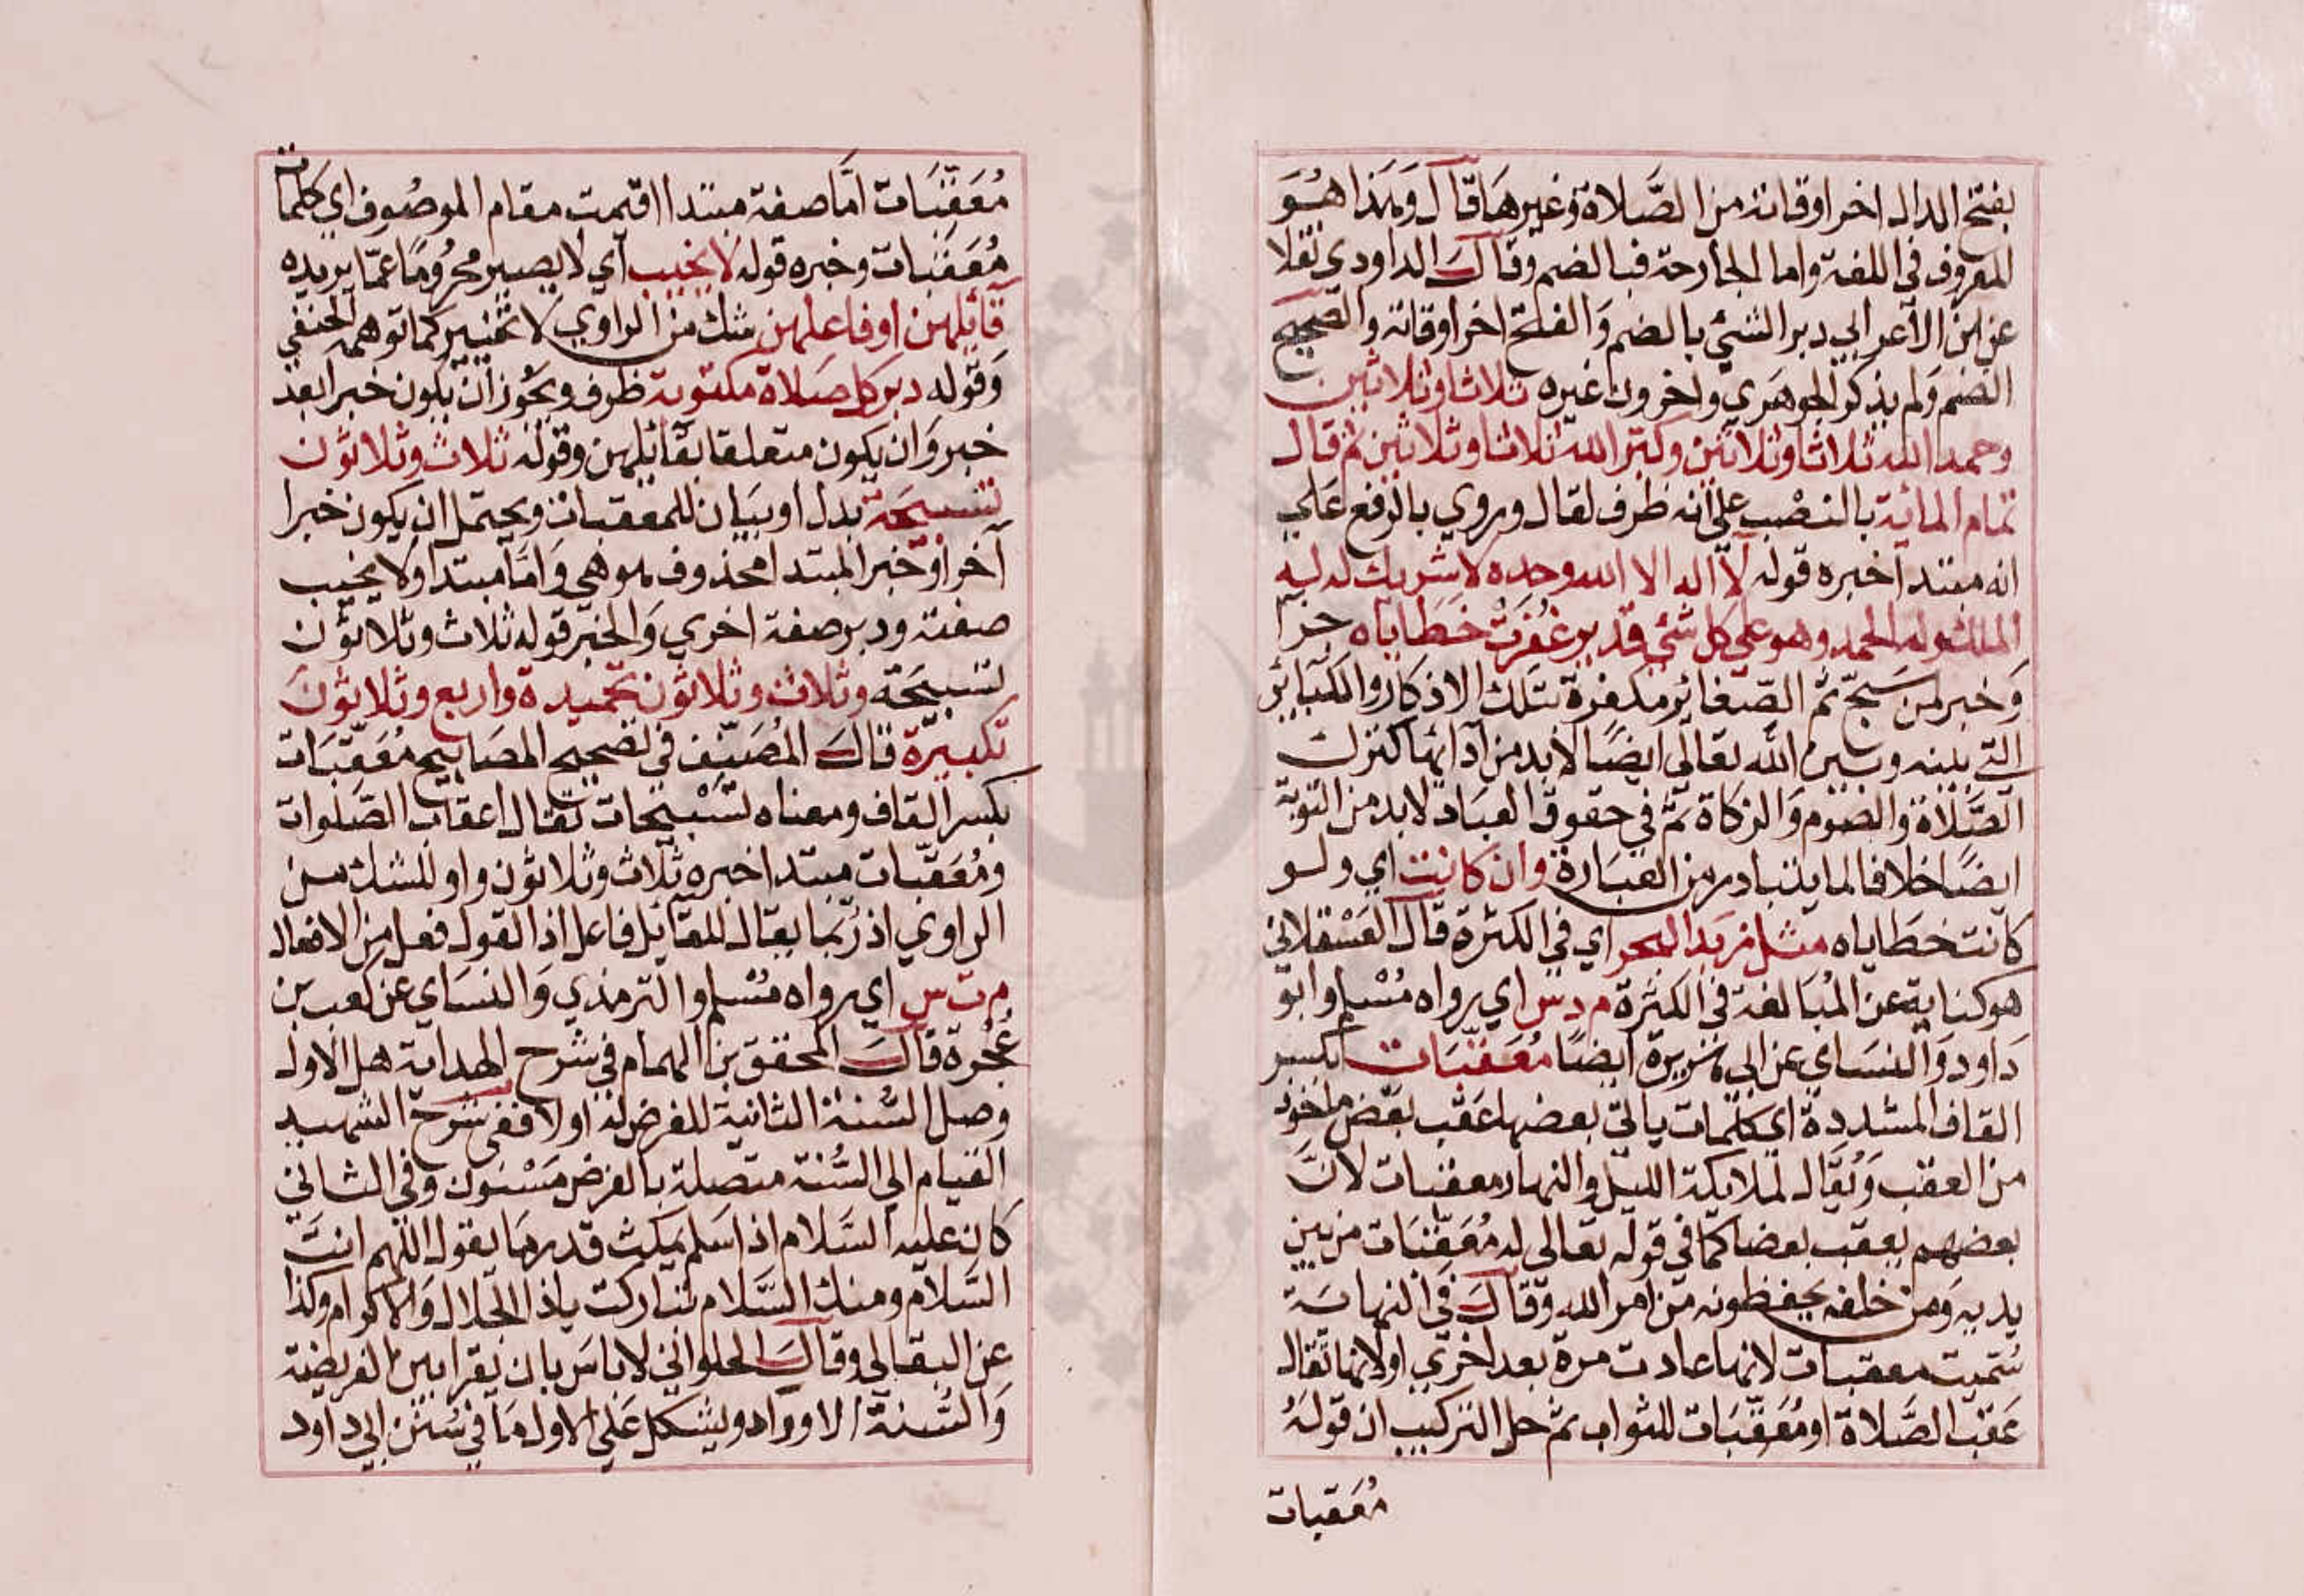 بفتح الدال اخر اوقاته من الصَّلاة وغيرهَا قال وَهَذا هُوَ
المعروف في اللغة واما الجارحة فبالضم وقالَ الداودي نقلا
عن ابن الاعرابي دبر الشئ بالضم وَالفتح اخر اوقاته والصحيح
الضم وَلم يذكر الجوهَري واخرون غيره ثلاثا وثلاثين
وحمد الله ثلاثا وثلاثين وكبر الله ثلاثا وثلاثين ثم قال
تمام المائة بالنصْب على انه ظرف لقال وروي بالرفع عَلى
انه مبتدا خبره قوله لا اله الا الله وحده لا شريك له له
الملك وله الحمد وهو على كل شئ قدير غُفِرَتْ خَطَاياه جزا
وَخبر لمن سَبحّ ثم الصّغائر مكفرة بتلك الاذكار والكبائر
التي بينه وبين الله تعالى ايضًا لا بد من ادائها كترك
الصَّلاة والصَوم وَالزكاة ثمَّ في حقوق العبَاد لا بد من التوبة
ايضًا خلافا لما يتبادر من العبَارة وان كانت اي ولو
كانت خطَاياه مثل زبد البحر اي في الكثرة قال العَسْقلاني
هو كناية عن المُبَالغة في الكثرة م د س اي رواه مُسْلم وابو
دَاود وَالنسَاي عن ابي هريرة ايضًا مُعَقِّبَات بكسر
القاف المشددة اي كلمات ياتي بعضها عَقب بعض ماخوذ
من العقب وَيُقَال لملايكة الليل والنهار معقبات لانَّ
بعضهم يعقب بعضا كما في قوله تعالى له مُعَقِّبَات من بين
يديه وَمن خلفه يحفظونه من امر الله وَقالَ في النهايَة
سُميت معقبات لانها عادت مرة بعد اخري او لانها تقال
عَقبَ الصَّلاة او مُعَقِّبَات للثواب ثم حل التركيب ان قوله
معقبات
مُعَقِّبَات امَّا صفة مبتدا اقيمت مقام الموصُوف اي كلمات
مُعَقِّبَات وخبره قوله لا يخيب اي لا يصير محرُومًا عمّا يريده
قائلهن او فاعلهن شك من الراوي لا تخيير كما توهمه الحنفي
وَقوله دبر كل صَلاة مكتوبة ظرف ويجُوز ان يكون خبرا بعد
خبر وَان يكون متعلقا بقائلهن وقوله ثلاث وثلاثون
تسبيحَة بدل او بيَان للمعقبات ويحتمل ان يكون خبرا
آخر او خبر المبتدا محذوف هو هي وَامّا مبتدا ولا يخيب
صفته ودبر صفة اخري وَالخبر قوله ثلاث وثلاثون
تسبيحَة وثلاث وثلاثون تحميدة واربع وثلاثونَ
تكبيرَة قالَ المُصَنِّف في تصحيح المصَابيح مُعَقِّبَات
بكسر القاف ومعناه تسْبيحات تقال اعقاب الصَّلوات
ومُعَقّبات مبتدا خبره ثلاث وثلاثون واو للشك من
الراوي اذ رُبّما يقال للقائل فاعل اذ القول فعل من الافعال
م ت س اي رواه مُسْلم والترمذي وَالنسَاي عن كعب بن
عُجْرة قالَ المحقق بن الهمام في شرح الهداية هل الاولى
وصل السُّنة الثانية للفرض له او لا ففي شرح الشهيد
القيام الى السُّنة متصلة بالفرض مَسْنون وفي الثاني
كان عليه السَّلام اذا سَلم يمكث قدر مَا يقول اللهم انتَ
السَّلام ومنك السَّلام تباركت ياذا الجلال وَالاكرام وكذا
عن البقالي وقالَ الحلواني لا باسَ بان يقرا بين الفريضة
وَالسُّنة الاوراد ويشكل عَلى الاول مَا في سُنن ابي داود